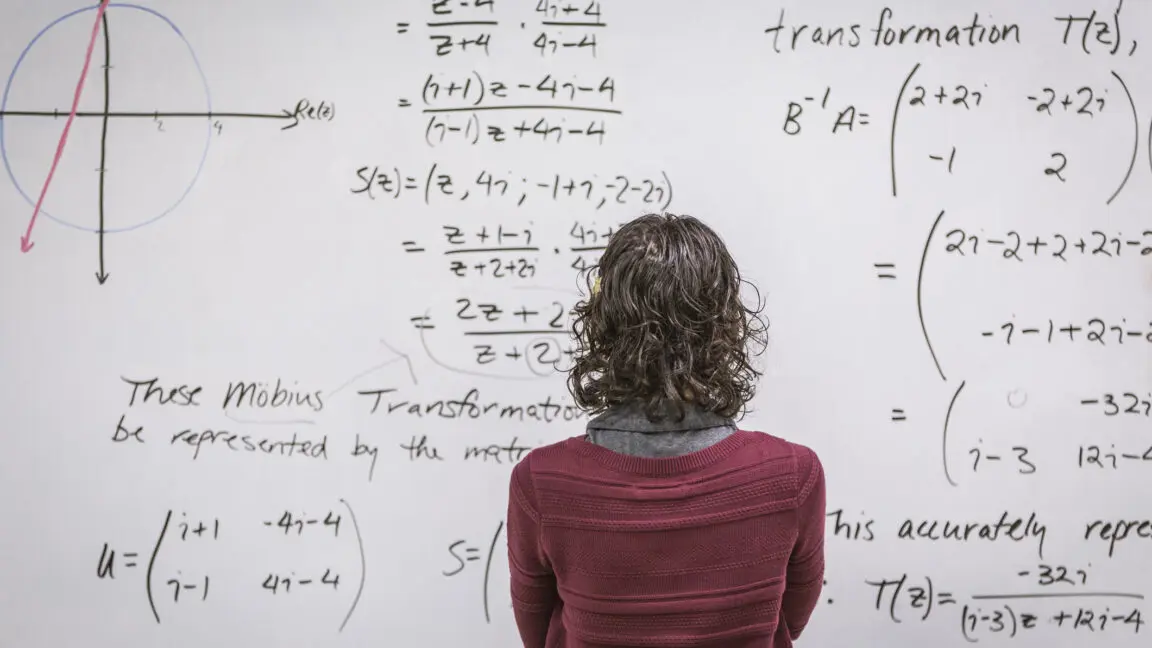 Re(z)
2 4
= z-4/z+4 · 4i+4/4i-4
= (i+1)z-4i-4/(i-1)z+4i-4
S(z)=(z, 4i; -1+i, -2-2i)
= z+1-i/z+2+2i ·
= 2z+2/z+2
These Möbius Transformation
be represented by the
U= (i+1 -4i-4
i-1 4i-4)
S=(
transformation T(z),
B⁻¹A= (2+2i -2+2i
-1 2)
= (2i-2+2+2i-2
-i-1+2i-2
= ( -32i
i-3 12i-4
his accurately repre
: T(z)= -32i/(i-3)z+12i-4